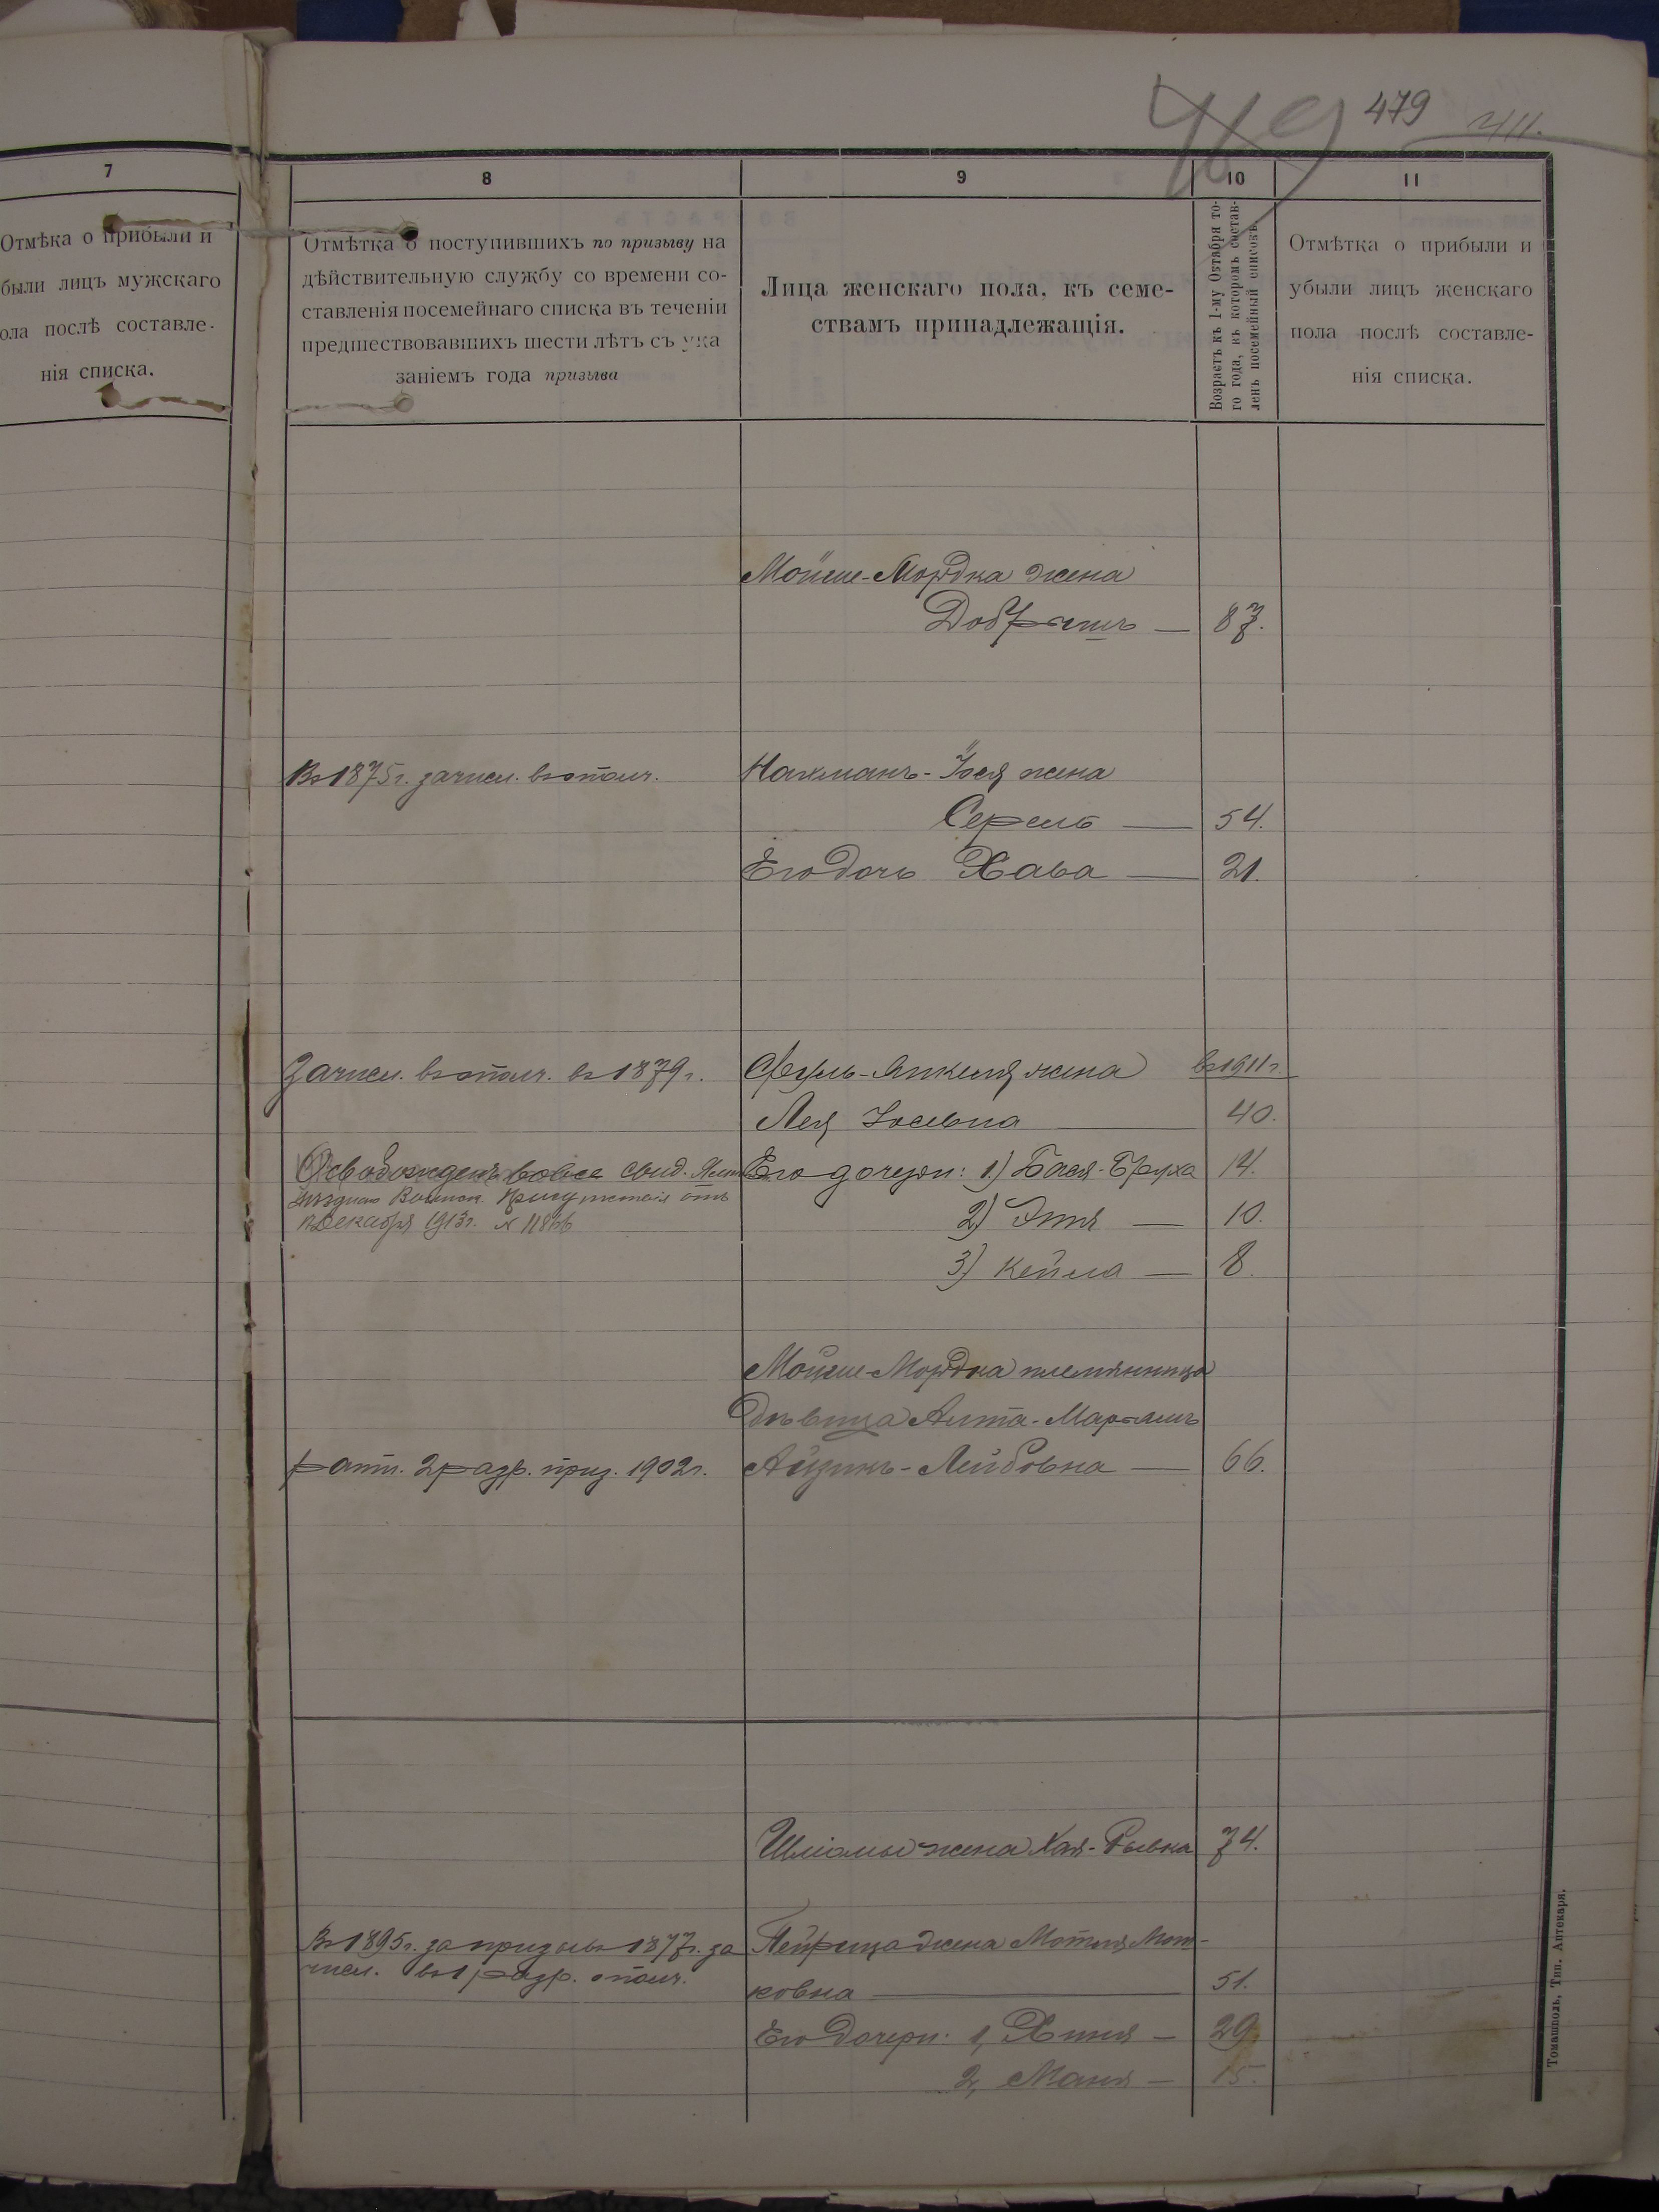 479
7
Отмѣка о прибыли и
были лицъ мужскаго
ола послѣ составле-
нія списка.
8
Отмѣтка о поступившихъ по призыву на
дѣйствительную службу со времени со-
ставленія посемейнаго списка въ теченіи
предшествовавшихъ шести лѣтъ съ ука
заніемъ года призыва
9
Лица женскаго пола, къ семе-
ствамъ принадлежащія.
10
Возрастъ къ 1-му Октября то-
го года, въ которомъ состав-
ленъ посемейный списокъ
11
Отмѣтка о прибыли и
убыли лицъ женскаго
пола послѣ составле-
нія списка.
Мойше-Мордка жена
Добрышъ — 87.
Въ 1875 г. зачисл. въ ополч.
Нахманъ-Іося жена
Серель — 54.
Его дочь Хава — 21.
Зачисл. въ ополч. въ 1879 г.
Сруль-Янкеля жена въ 1911 г.
Лея Іосевна 40.
Освобожденъ вовсе свид.
Уѣзднаго Воинск. Присутствія отъ
Декабря 1913 г. №
Его дочери: 1) Бася-Бруха 14.
2) Этя — 10.
3) Кейла — 8.
Мойше-Мордка племянница
дѣвица Алта-Марьямъ
ратн. 2 разр. приз. 1902 г.
Айзикъ-Лейбовна — 66.
Шліомы жена Хая-Рывка 74.
Въ 1895 г. за призывъ 1877 г. за
числ. въ 1 разр. ополч.
Пейреца жена Мотля Мот-
ковна 51.
Его дочери: 1, — 29.
2, Маня — 15.
Томашполь, Тип. Аптекаря.